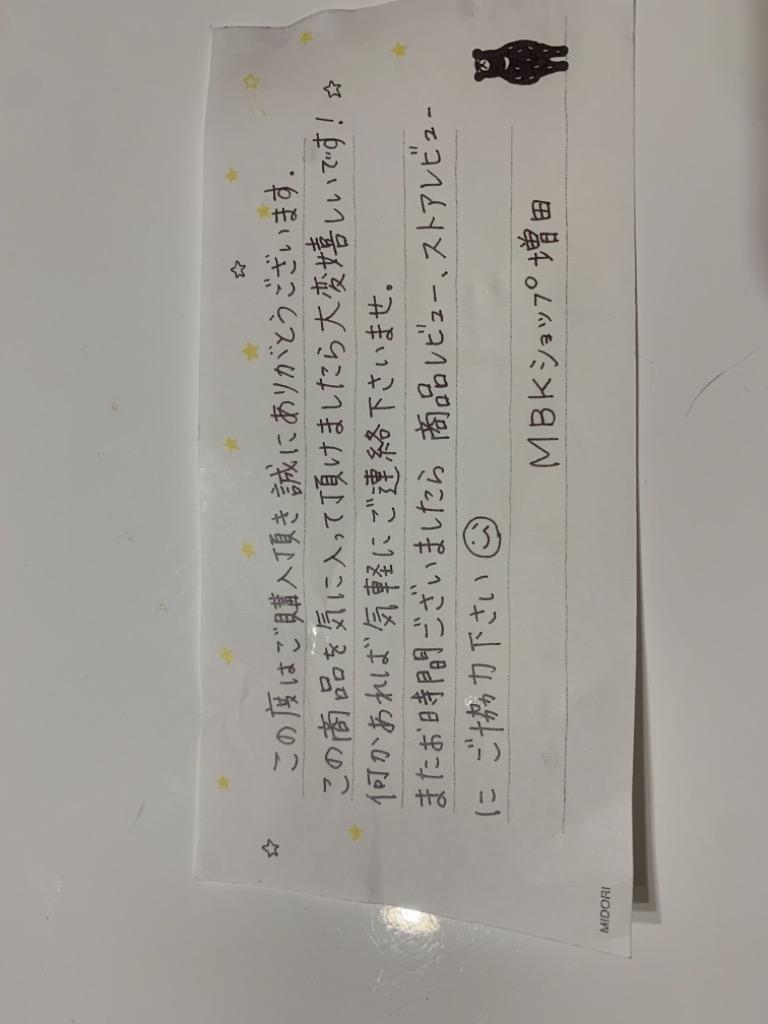 この度はご購入頂き誠にありがとうございます.
この商品を気に入って頂けましたら大変嬉しいです!☆
何かあれば気軽にご連絡下さいませ。
またお時間ございましたら 商品レビュー、ストアレビュー
に ご協力下さい
MBKショップ 増田
MIDORI